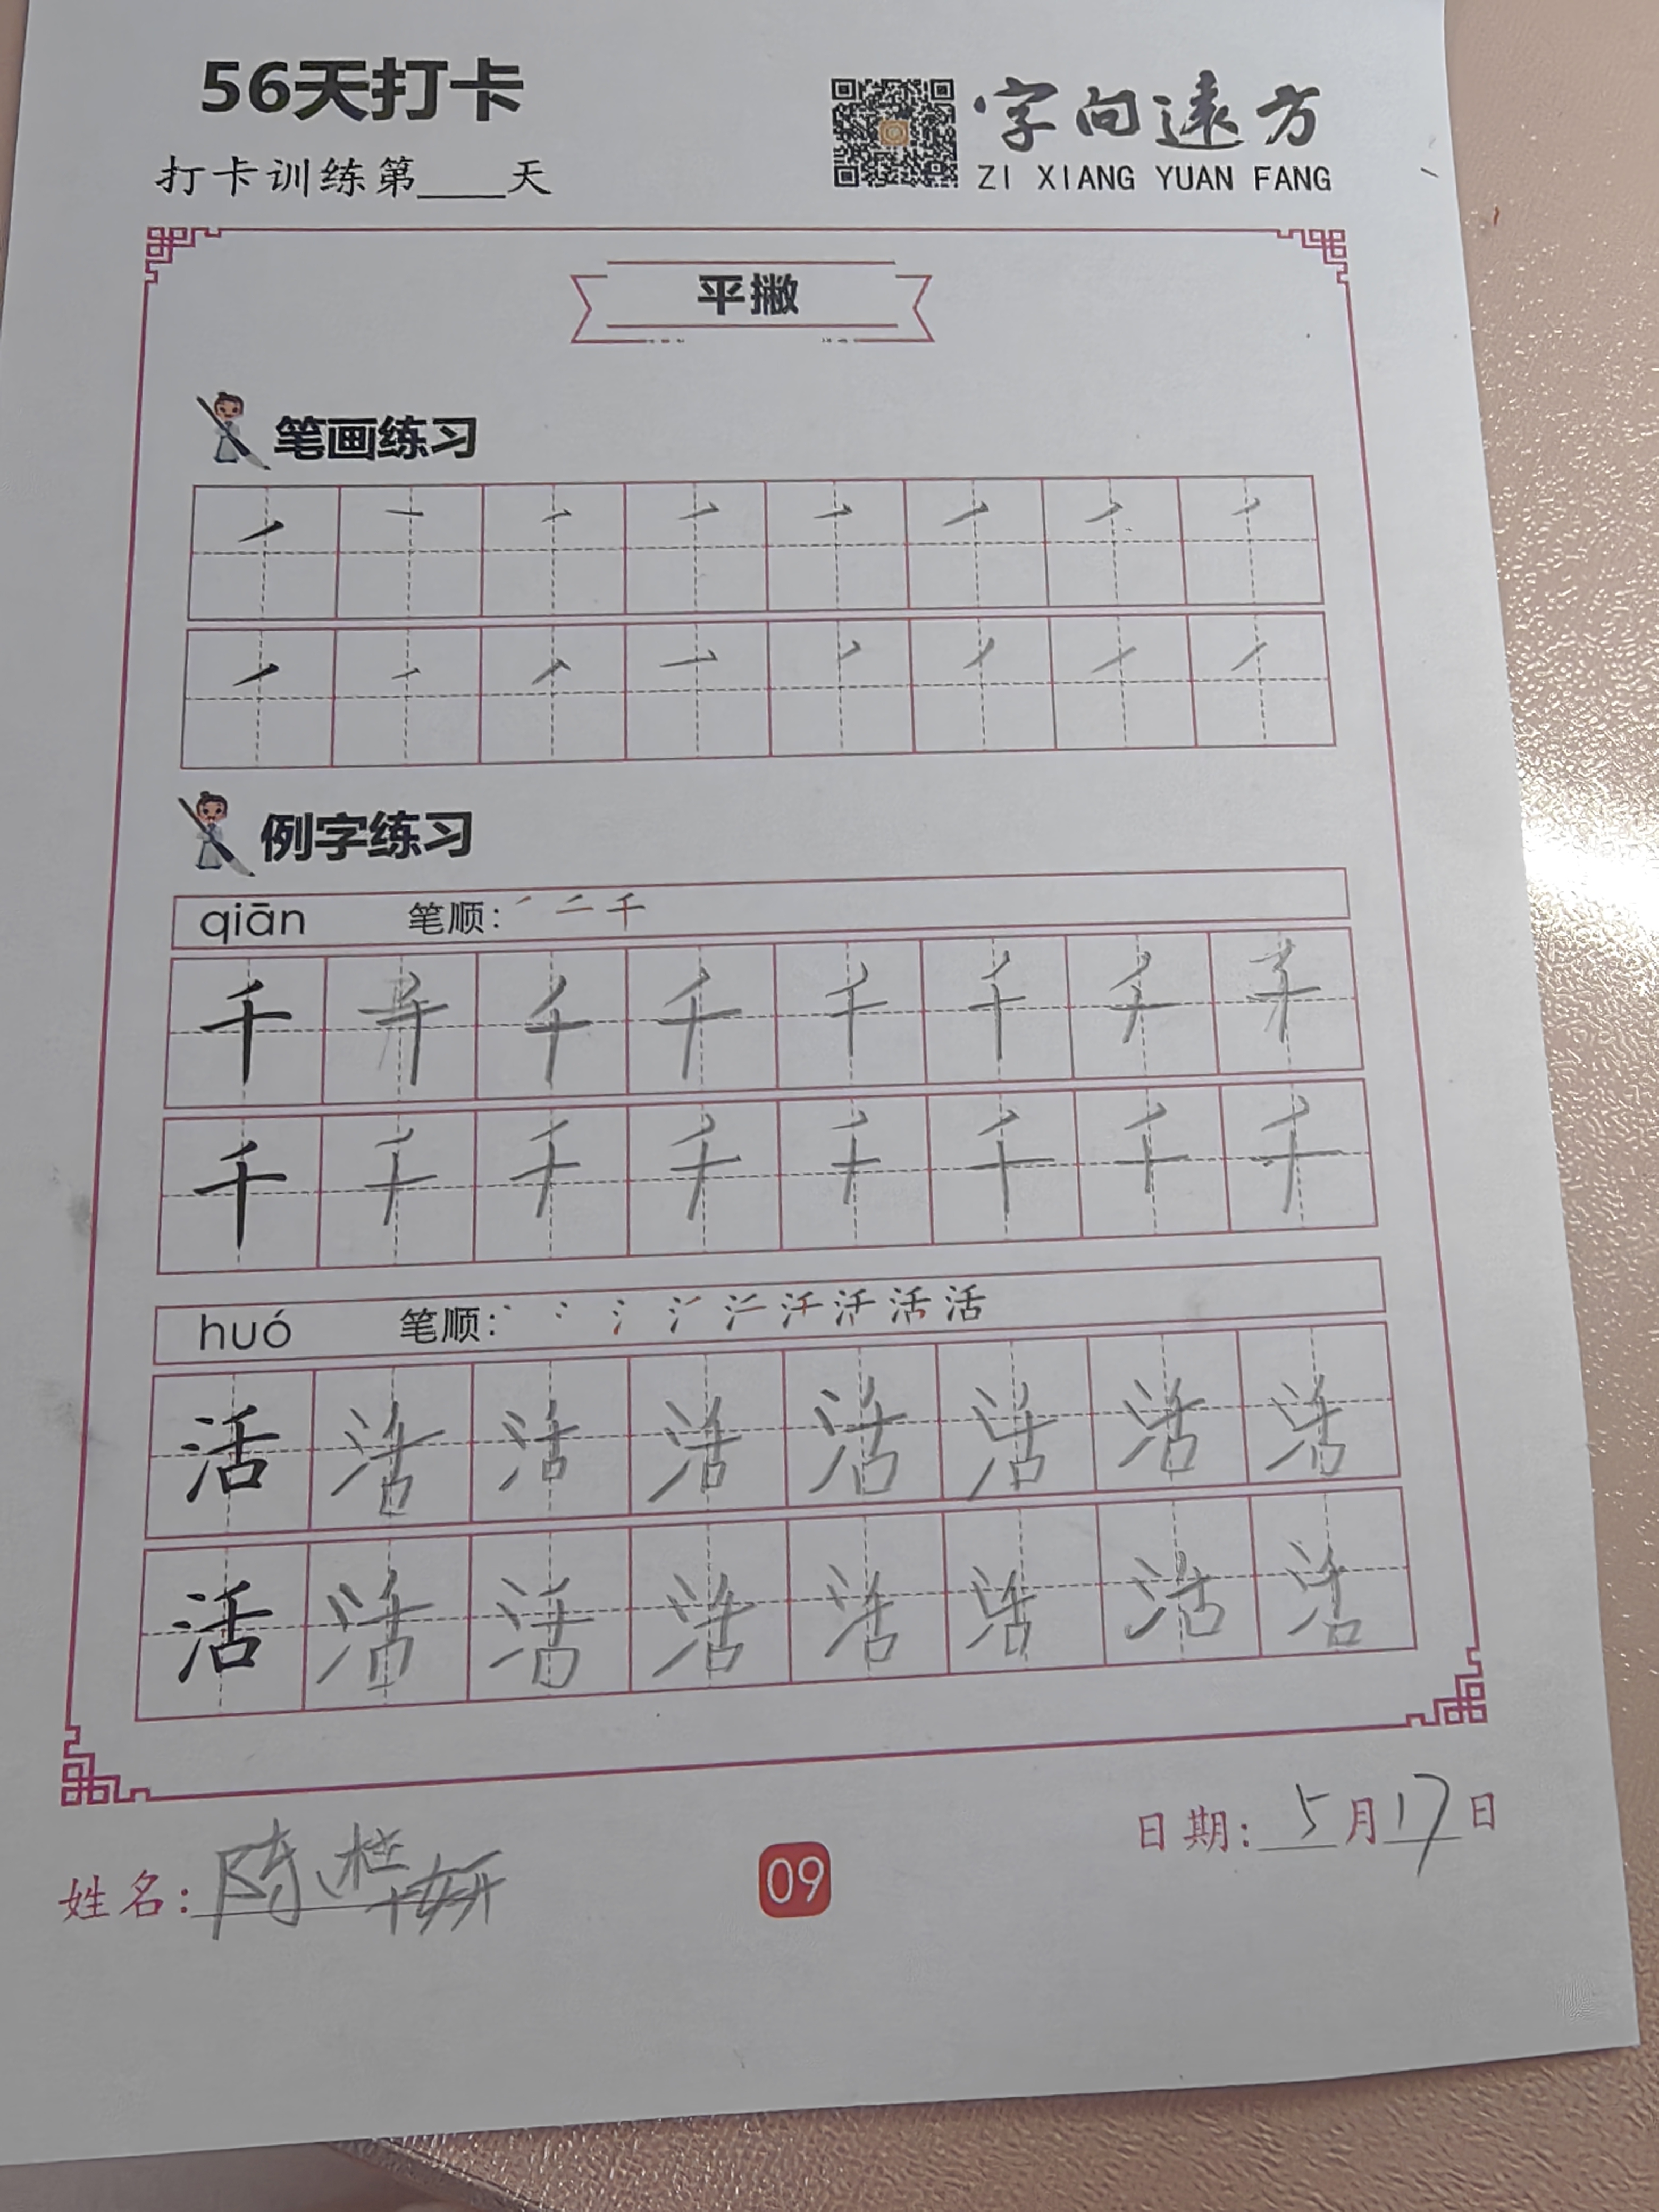 56天打卡
打卡训练第____天
字向遠方
ZI XIANG YUAN FANG
平撇
笔画练习
例字练习
qiān 笔顺: ㇒ 二 千
千 千 千 千 千 千 千 千
千 千 千 千 千 千 千 千
huó 笔顺: 活
活 活 活 活 活 活 活 活
活 活 活 活 活 活 活 活
姓名: 陈
09
日期: 5月17日